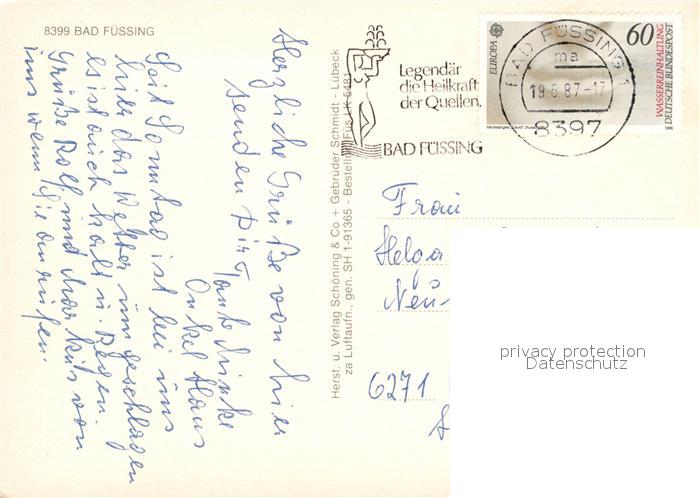 8399 BAD FÜSSING
Herzliche Grüße von hier
senden Dir
Tante Minke
Onkel Hans
Seit Sonntag ist bei uns
hier das Wetter umgeschlagen
es ist auch kalt u. Regen.
Grüße Rolf und
uns wenn Sie anrufen.
Herst. u. Verlag Schöning & Co + Gebrüder Schmidt - Lübeck
za Luftaufn., gen. SH 1-91365 - Bestellnr.
Legendär
die Heilkraft
der Quellen.
BAD FÜSSING
EUROPA
60
WASSERREINHALTUNG
DEUTSCHE BUNDESPOST
1986
BAD FÜSSING 1
ma
19.6.87-17
8397
Frau
Helga
Neu-
6271
privacy protection
Datenschutz